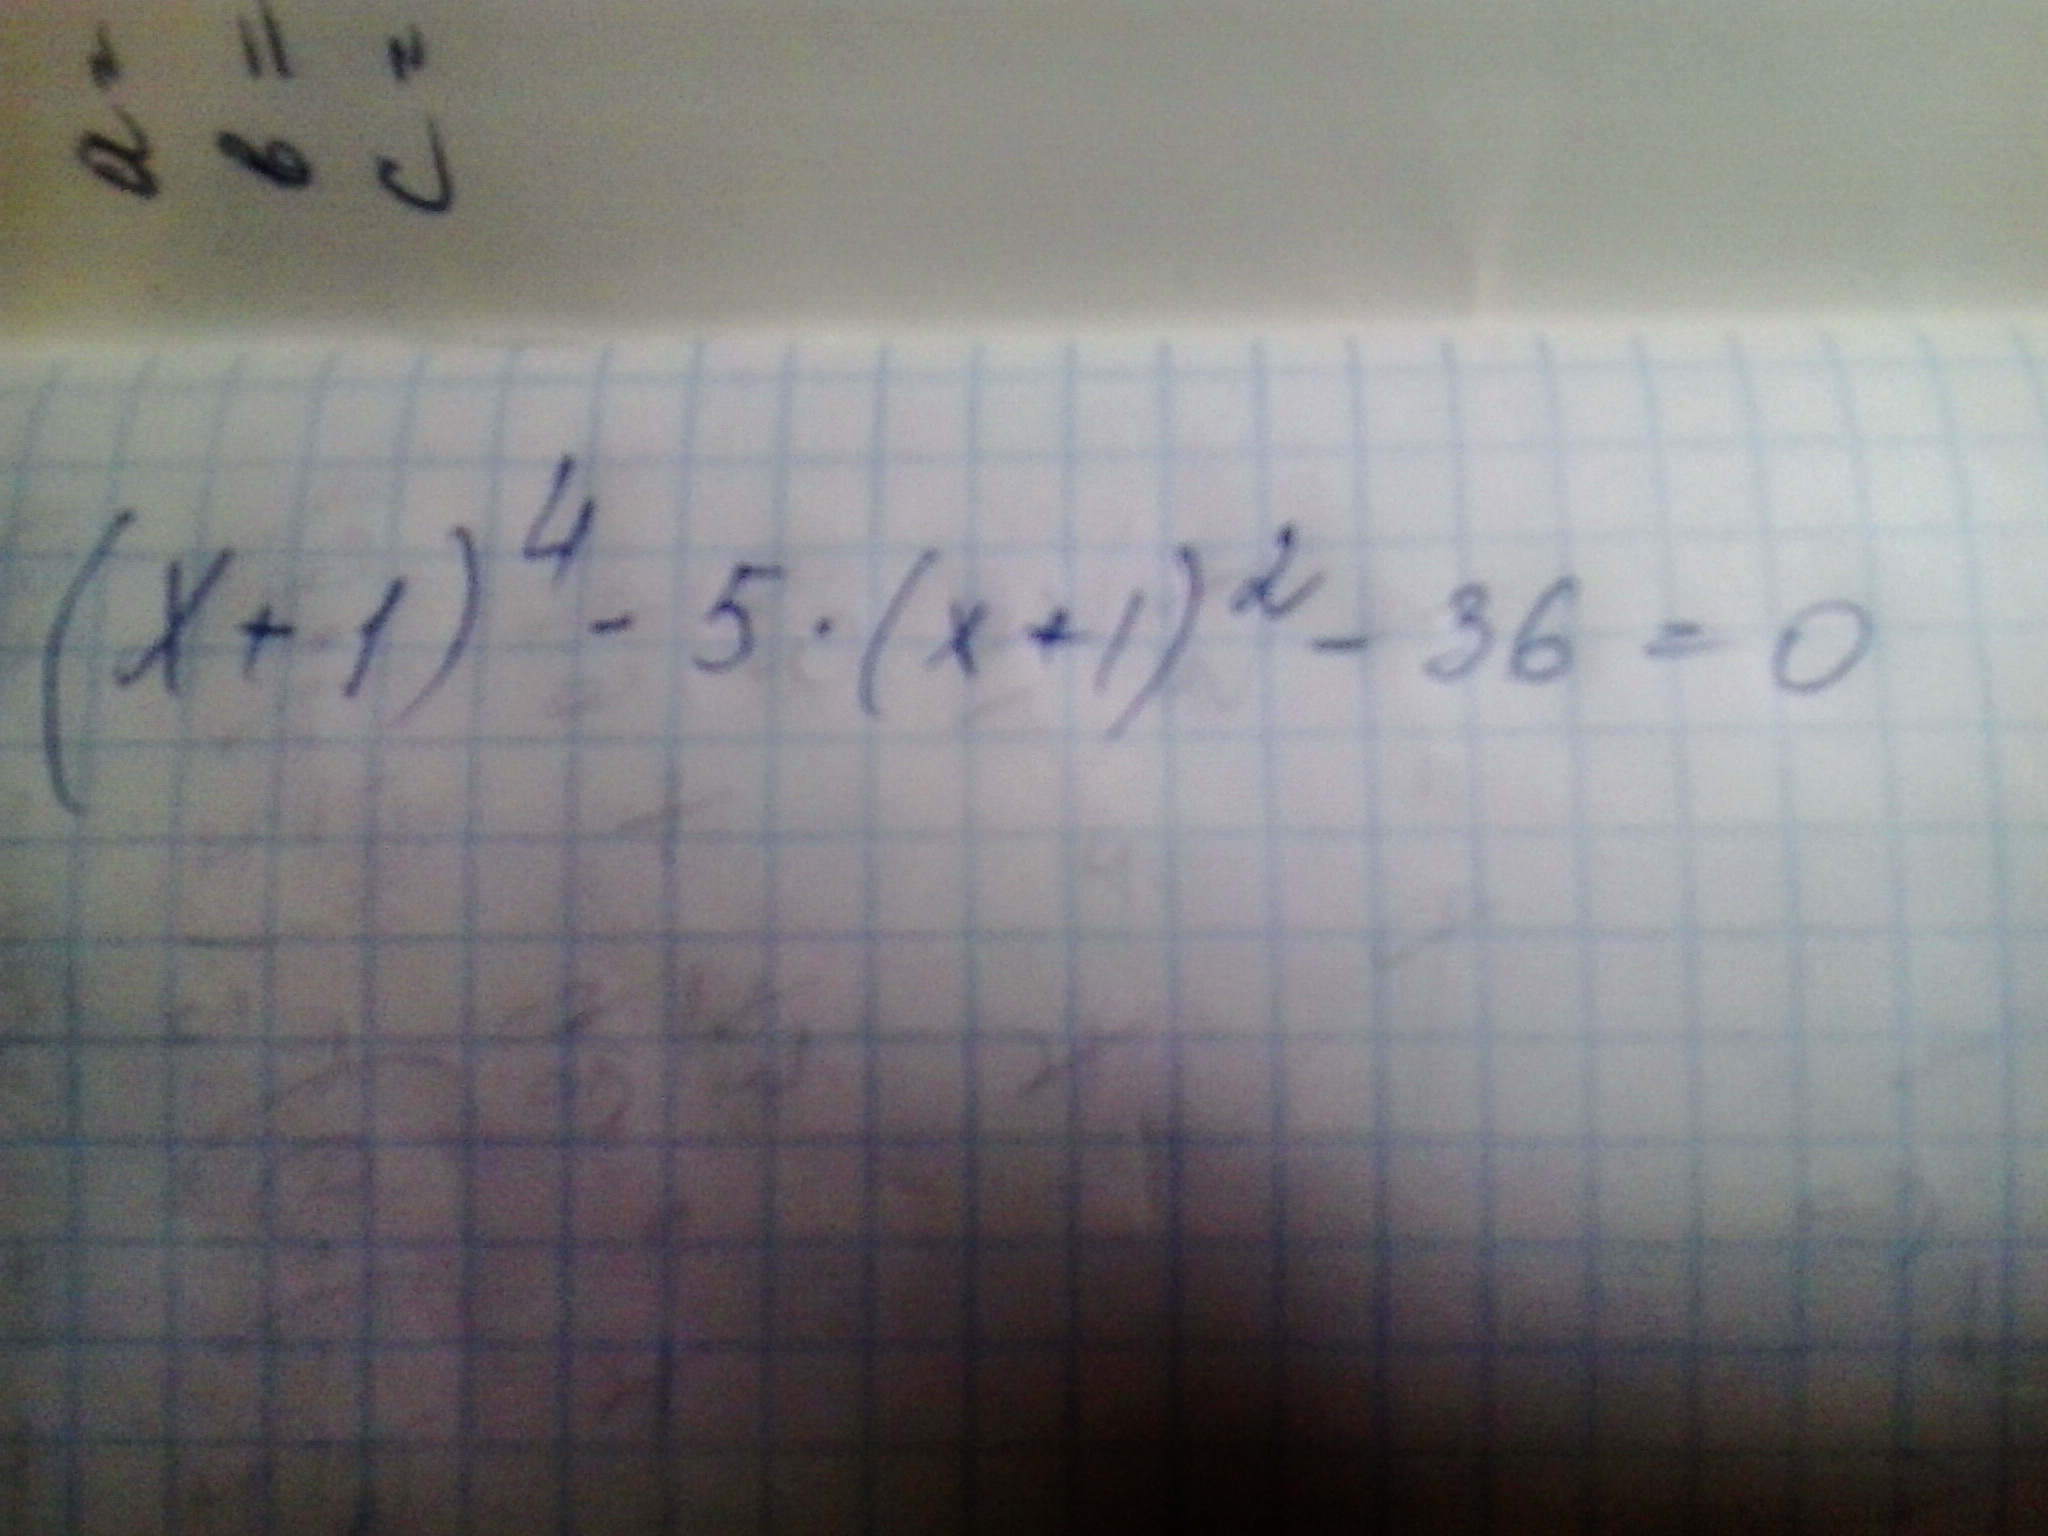 a =
в =
c =
(x+1)⁴ - 5·(x+1)² - 36 = 0